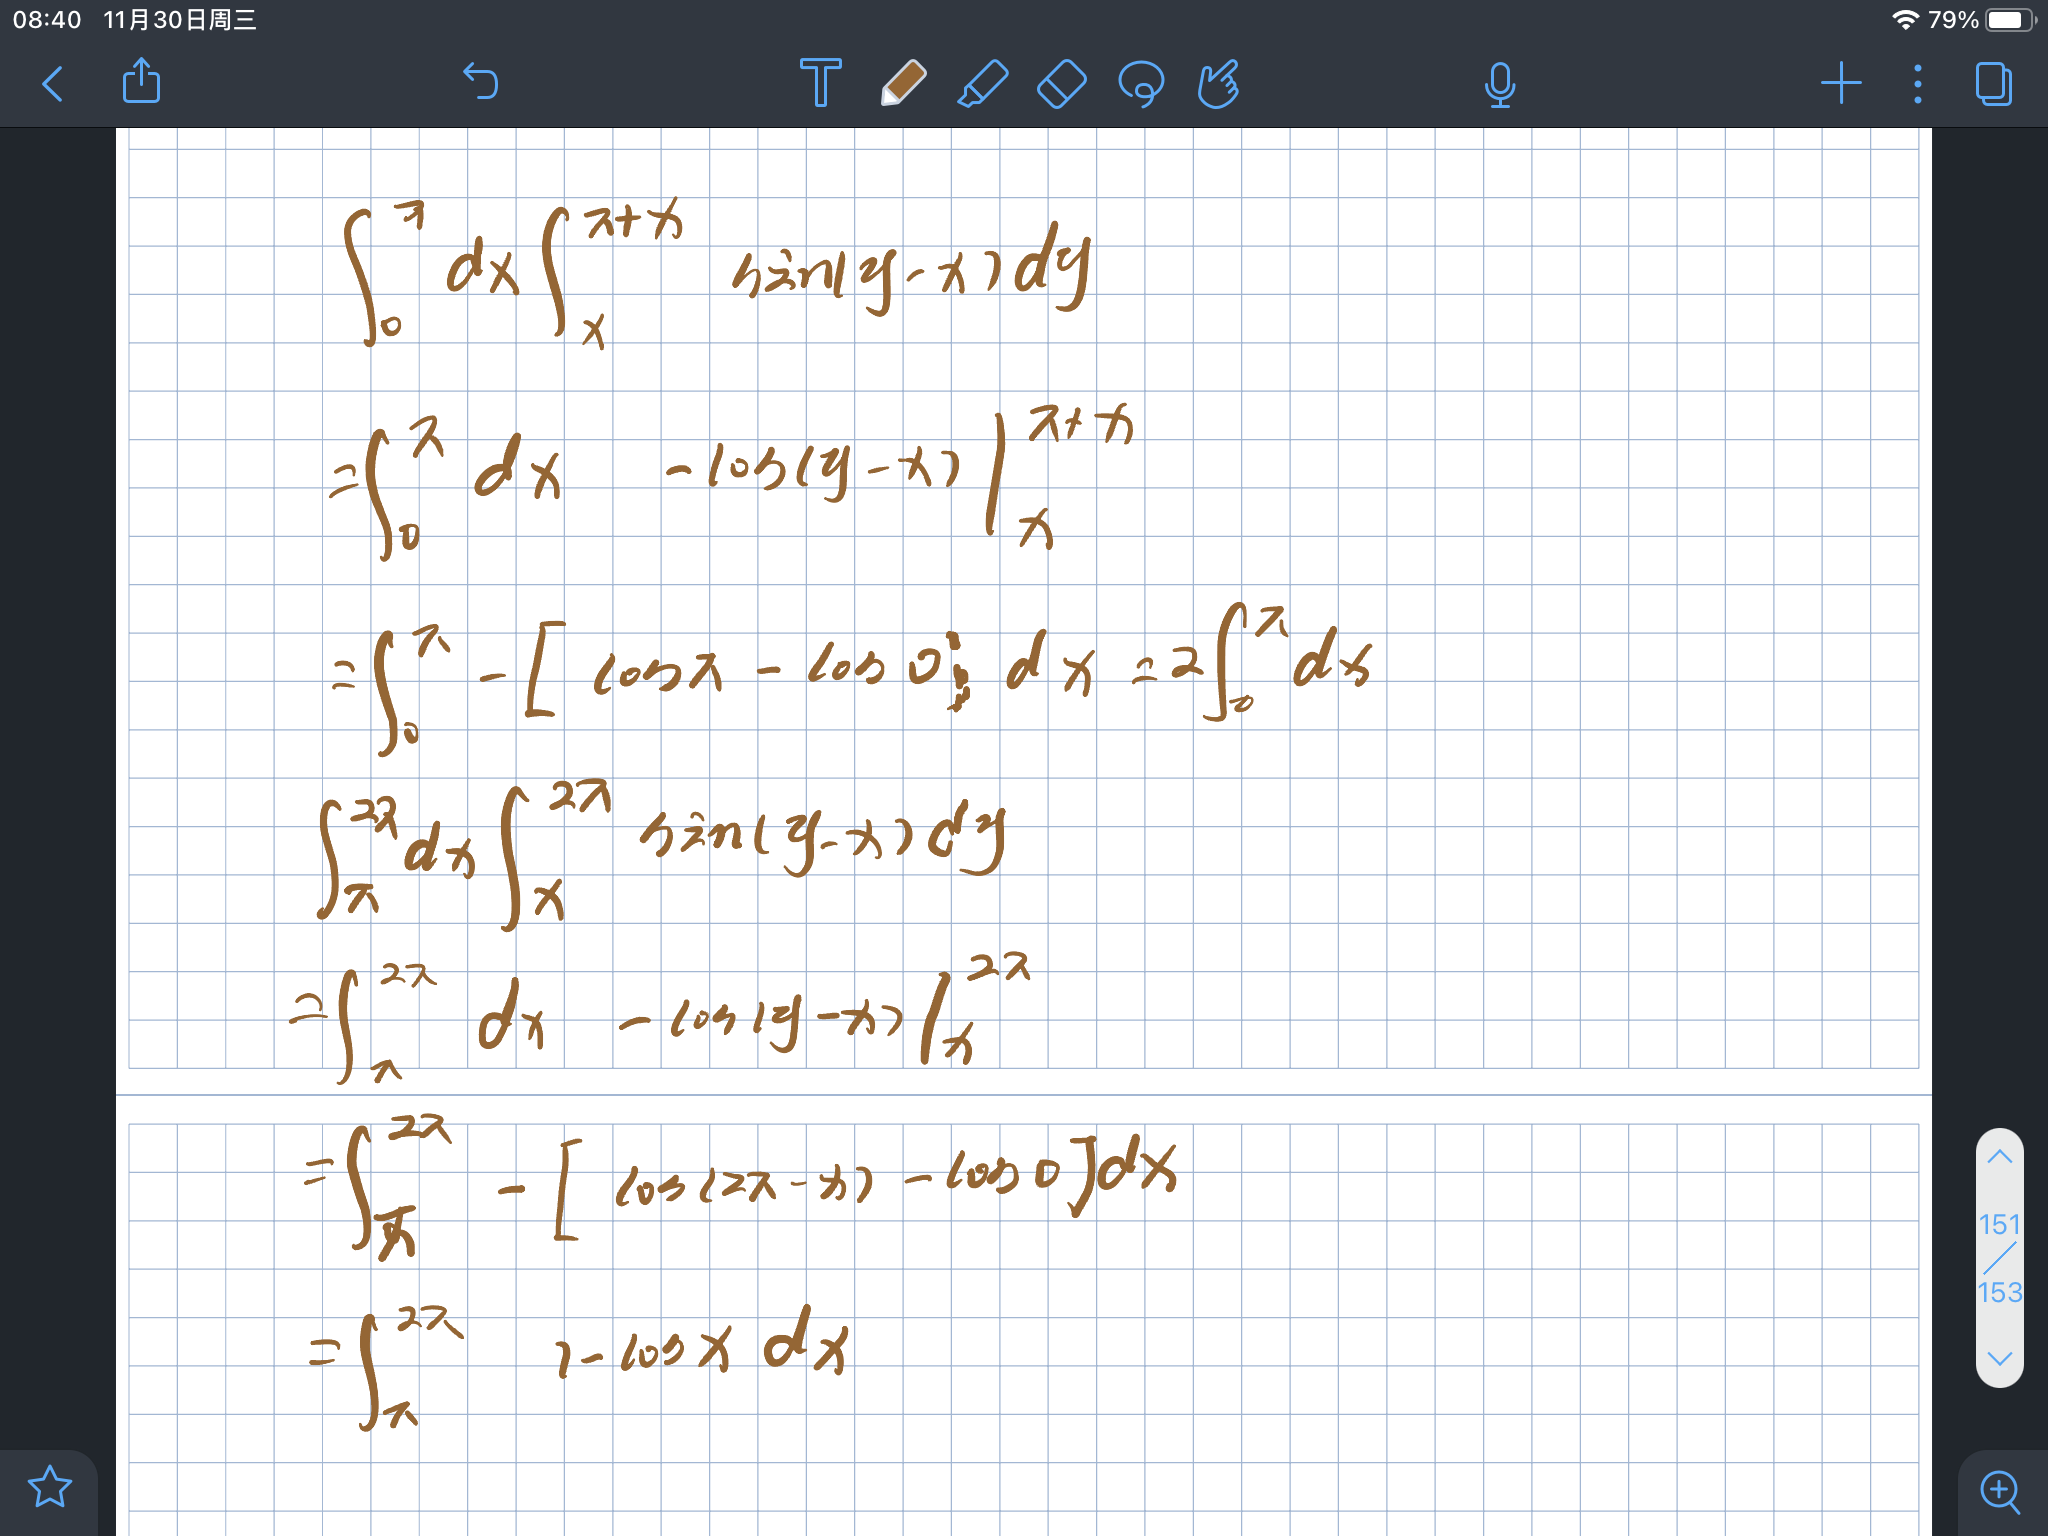 08:40 11月30日周三 79%
T
∫_0^π dx ∫_x^{π+x} sin(y-x)dy
=∫_0^π dx -cos(y-x)|_x^{π+x}
=∫_0^π -[cosπ-cos0] dx =2∫_0^π dx
∫_π^{2π} dx ∫_x^{2π} sin(y-x)dy
=∫_π^{2π} dx -cos(y-x)|_x^{2π}
=∫_π^{2π} -[cos(2π-x)-cos0]dx
=∫_π^{2π} 1-cosx dx
151/153